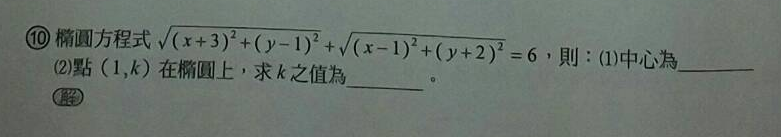 ⑩ 橢圓方程式 √(x+3)²+(y−1)² + √(x−1)²+(y+2)² = 6，則：⑴中心為______
⑵點（1,k）在橢圓上，求 k 之值為______。
解